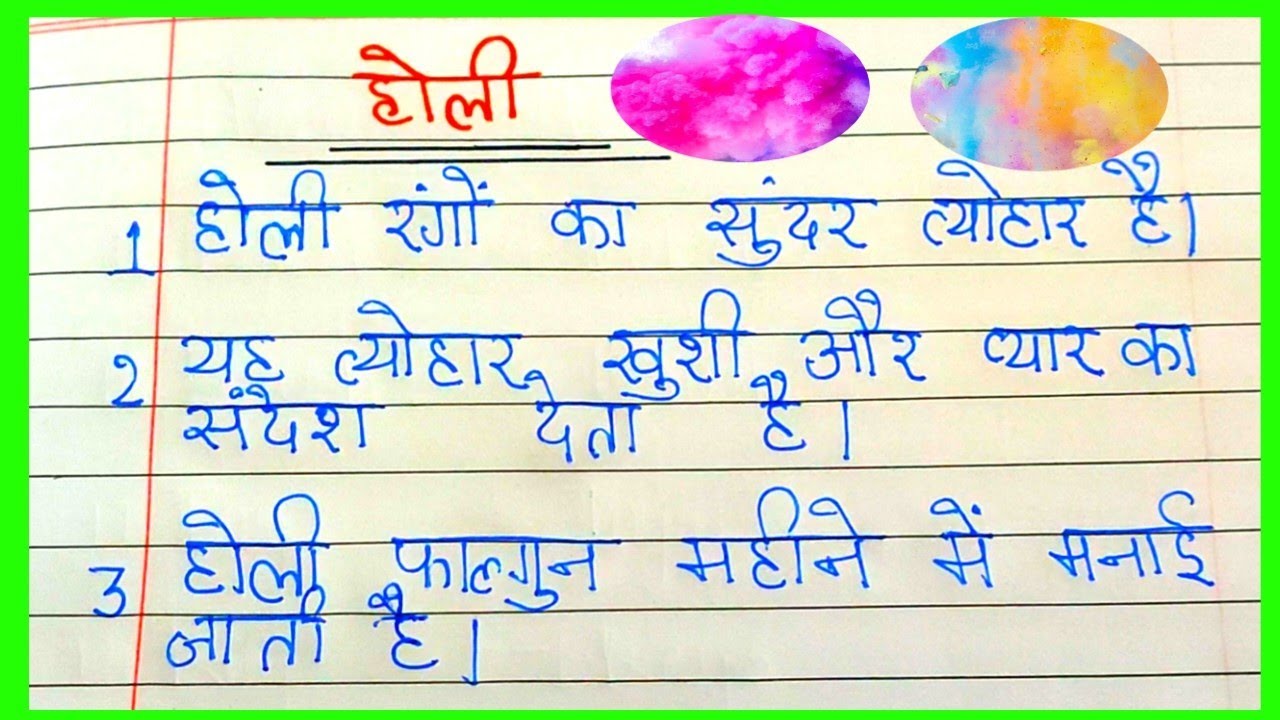 होली
1 होली रंगों का सुंदर त्योहार है।
2 यह त्योहार खुशी और प्यार का
संदेश देता है।
3 होली फाल्गुन महीने में मनाई
जाती है।